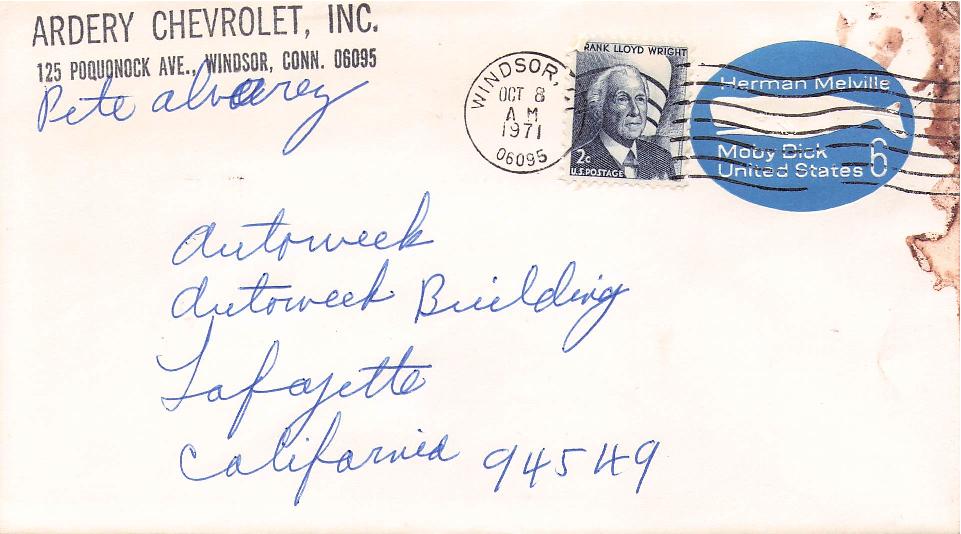 ARDERY CHEVROLET, INC.
125 POQUONOCK AVE., WINDSOR, CONN. 06095
Pete Alvarez
WINDSOR,
OCT 8
A M
1971
06095
FRANK LLOYD WRIGHT
2c
U.S. POSTAGE
Herman Melville
Moby Dick
United States 6
Autoweek
Autoweek Building
Lafayette
California 94549